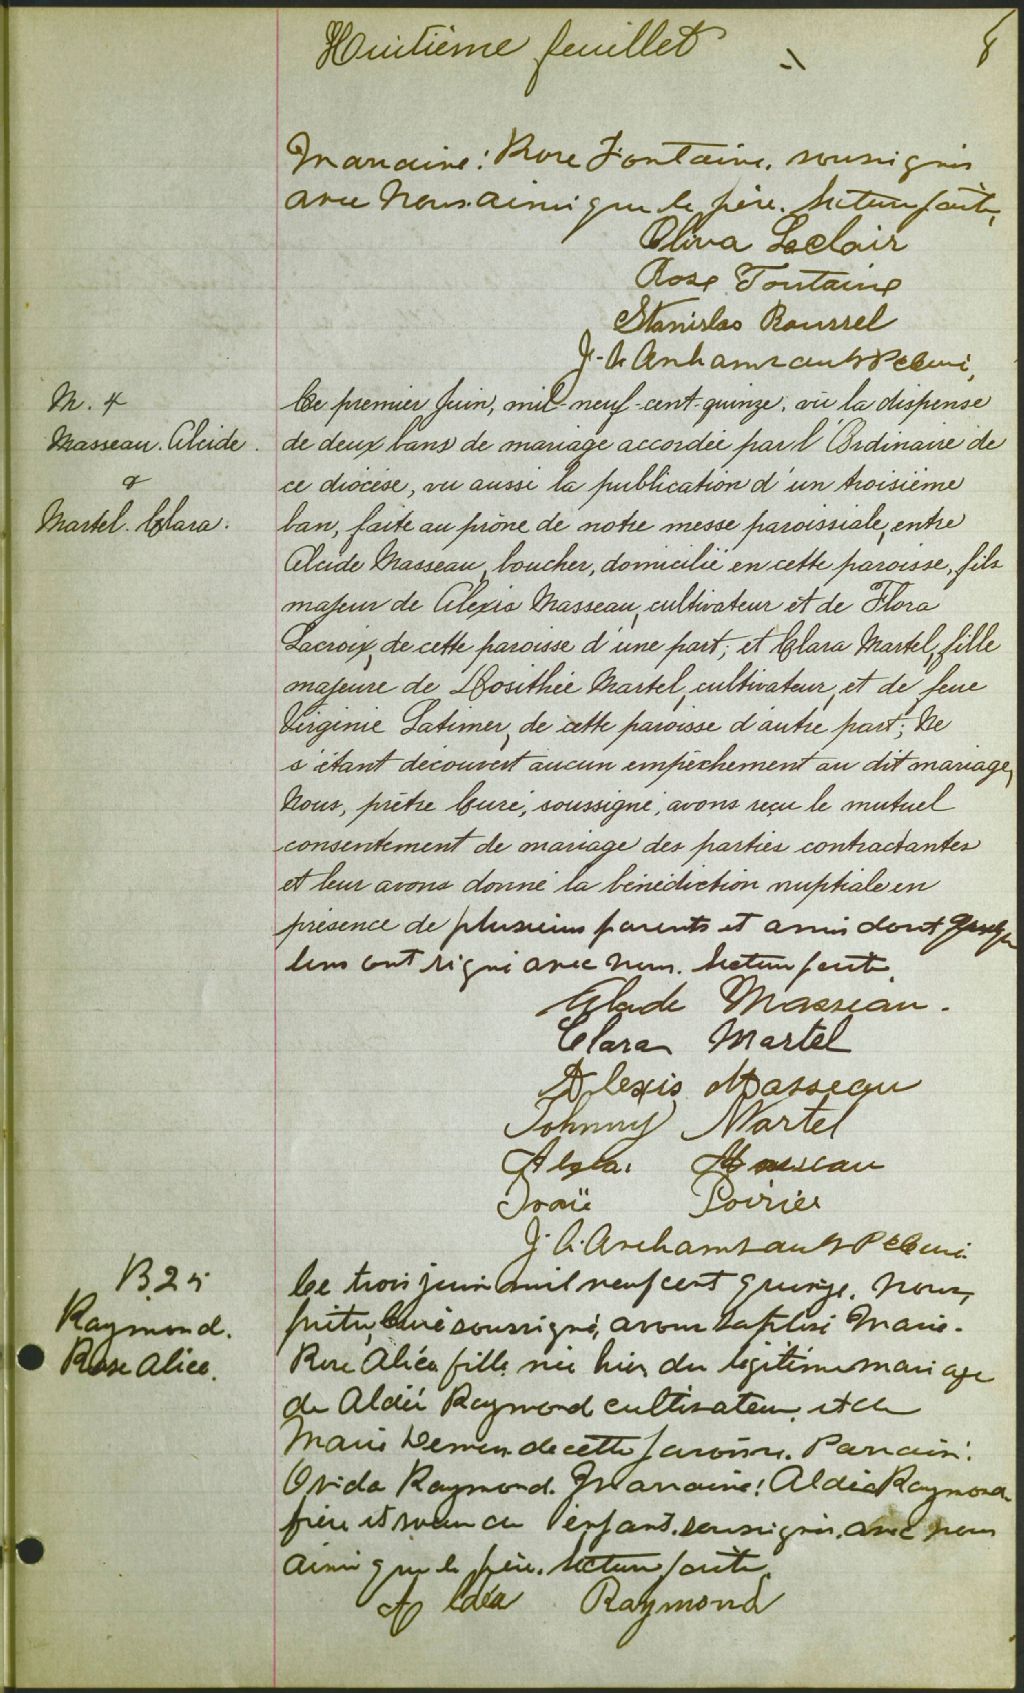 Huitième feuillet
8
Marraine: Rose Fontaine, soussignés
avec Nous ainsi que le père. Lecture faite,
Oliva Leclair
Rose Fontaine
Stanislas Roussel
J. A. Archambault Ptre Curé,
M. 4
Masseau. Alcide.
&
Martel. Clara.
Ce premier Juin, mil-neuf-cent-quinze, vu la dispense
de deux bans de mariage accordée par l'Ordinaire de
ce diocèse, vu aussi la publication d'un troisième
ban, faite au prône de notre messe paroissiale, entre
Alcide Masseau, boucher, domicilié en cette paroisse, fils
majeur de Alexis Masseau, cultivateur et de Flora
Lacroix, de cette paroisse d'une part; et Clara Martel, fille
majeure de Dosithée Martel, cultivateur, et de feue
Virginie Latimer, de cette paroisse d'autre part; Ne
s'étant découvert aucun empêchement au dit mariage,
Nous, prêtre Curé, soussigné, avons reçu le mutuel
consentement de mariage des parties contractantes
et leur avons donné la bénédiction nuptiale en
présence de plusieurs parents et amis dont quelques
uns ont signé avec nous. Lecture faite.
Alcide Masseau.
Clara Martel
Alexis Masseau
Johnny Martel
Masseau
Poirier
J. A. Archambault Ptre Curé.
B 25
Raymond.
Rose Alice.
Ce trois juin mil neuf cent quinze, Nous,
prêtre, Curé soussigné, avons baptisé Marie-
Rose Alice, fille née hier, du légitime mariage
de Aldéi Raymond cultivateur, et de
Marie de cette paroisse. Parrain:
Ovida Raymond. Marraine: Aldéa Raymond
frère et soeur de l'enfant, soussignés, avec nous
ainsi que le père. Lecture faite.
Aldéa Raymond